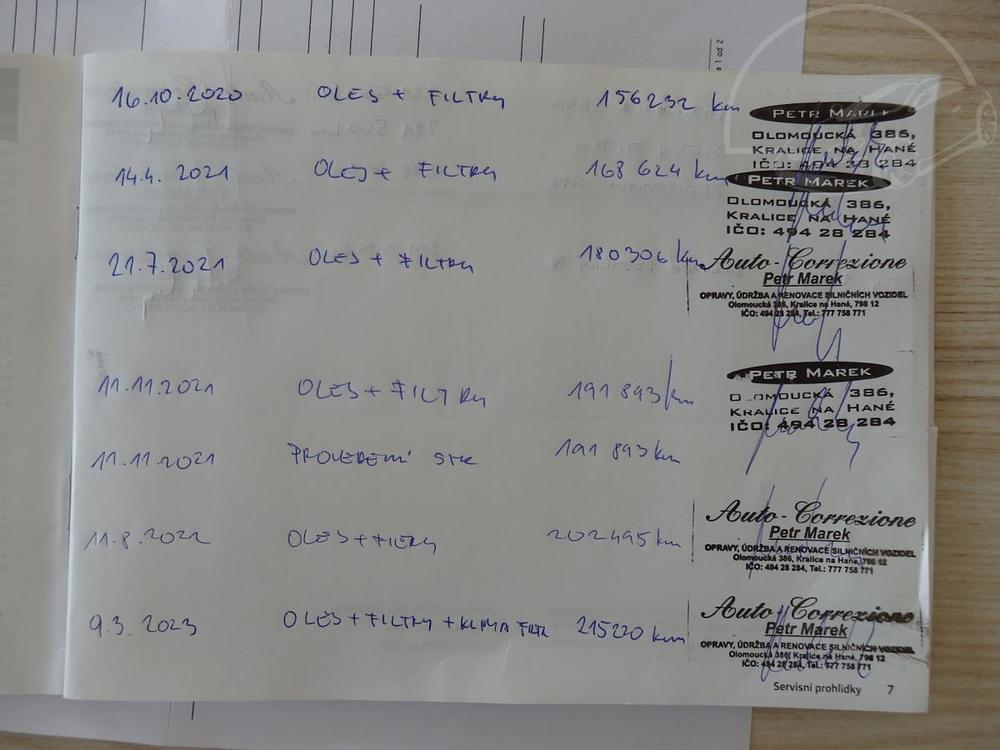 1 od 2
16.10.2020 OLEJ + FILTRY 156232 km
PETR MAREK
OLOMOUCKÁ 386,
KRALICE NA HANÉ
IČO: 494 28 284
14.4. 2021 OLEJ + FILTRY 168 624 km
PETR MAREK
OLOMOUCKÁ 386,
KRALICE NA HANÉ
IČO: 494 28 284
21.7.2021 OLEJ + FILTRY 180306 km
Auto-Correzione
Petr Marek
OPRAVY, ÚDRŽBA A RENOVACE SILNIČNÍCH VOZIDEL
Olomoucká 386, Kralice na Hané, 798 12
IČO: 494 28 284, Tel.: 777 758 771
11.11.2021 OLEJ + FILTRY 191 893 km
PETR MAREK
OLOMOUCKÁ 386,
KRALICE NA HANÉ
IČO: 494 28 284
11.11.2021 PROVEDENÍ STK 191 893 km
11.8.2022 OLEJ + FILTRY 202495 km
Auto-Correzione
Petr Marek
OPRAVY, ÚDRŽBA A RENOVACE SILNIČNÍCH VOZIDEL
Olomoucká 386, Kralice na Hané, 798 12
IČO: 494 28 284, Tel.: 777 758 771
9.3. 2023 OLEJ + FILTRY + KLIMA FILTR 215220 km
Auto-Correzione
Petr Marek
OPRAVY, ÚDRŽBA A RENOVACE SILNIČNÍCH VOZIDEL
Olomoucká 386, Kralice na Hané, 798 12
IČO: 494 28 284, Tel.: 777 758 771
Servisní prohlídky 7